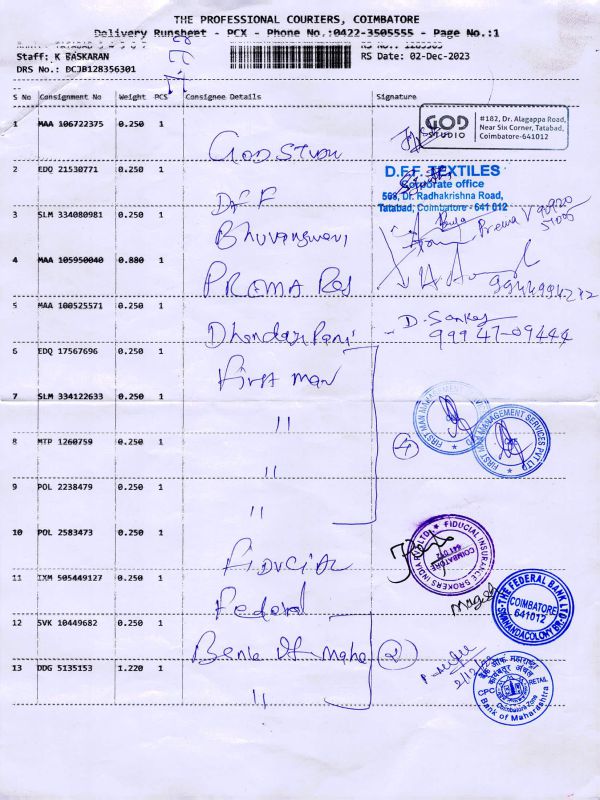 THE PROFESSIONAL COURIERS, COIMBATORE
Delivery Runsheet - PCX - Phone No.:0422-3505555 - Page No.:1
Staff: K BASKARAN
RS Date: 02-Dec-2023
DRS No.: DCJB128356301
S No Consignment No Weight PCS Consignee Details Signature
1 MAA 106722375 0.250 1 GOD STUDIO
GOD STUDIO
#182, Dr. Alagappa Road,
Near Six Corner, Tatabad,
Coimbatore-641012
2 EDQ 21530771 0.250 1 DFF
D.F.F. TEXTILES
Corporate office
568, Dr. Radhakrishna Road,
Tatabad, Coimbatore - 641 012
3 SLM 334080981 0.250 1 Bhuvaneswari
Prema V 90920
51005
4 MAA 105950040 0.880 1 PREMA Raj
9944994272
5 MAA 100525571 0.250 1 Dhandazi Pani
D. Sankar
99947-09444
6 EDQ 17567696 0.250 1 First man
7 SLM 334122633 0.250 1 "
FIRST MAN MANAGEMENT SERVICES PVT LTD
8 MTP 1260759 0.250 1 "
4
9 POL 2238479 0.250 1 "
10 POL 2583473 0.250 1 FIDUCIAL
FIDUCIAL INSURANCE BROKERS INDIA (P) LTD
COIMBATORE
641 012
11 IXM 505449127 0.250 1 Federal
THE FEDERAL BANK LTD.
COIMBATORE
641012
12 SVK 10449682 0.250 1 Bank Of Maha
2
13 DDG 5135153 1.220 1 "
बैंक ऑफ महाराष्ट्र
CPC RETAIL
Coimbatore Zone
Bank of Maharashtra